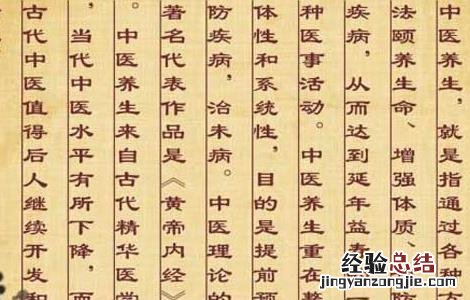 中医养生,就是指通过各种方
法颐养生命、增强体质、
疾病,从而达到延年益寿一
种医事活动。中医养生重在整
体性和系统性,目的是提前预
防疾病,治未病。中医理论的
著名代表作品是《黄帝内经》
。中医养生来自古代精华医学
,当代中医水平有所下降,而
古代中医值得后人继续开发和
经验总结